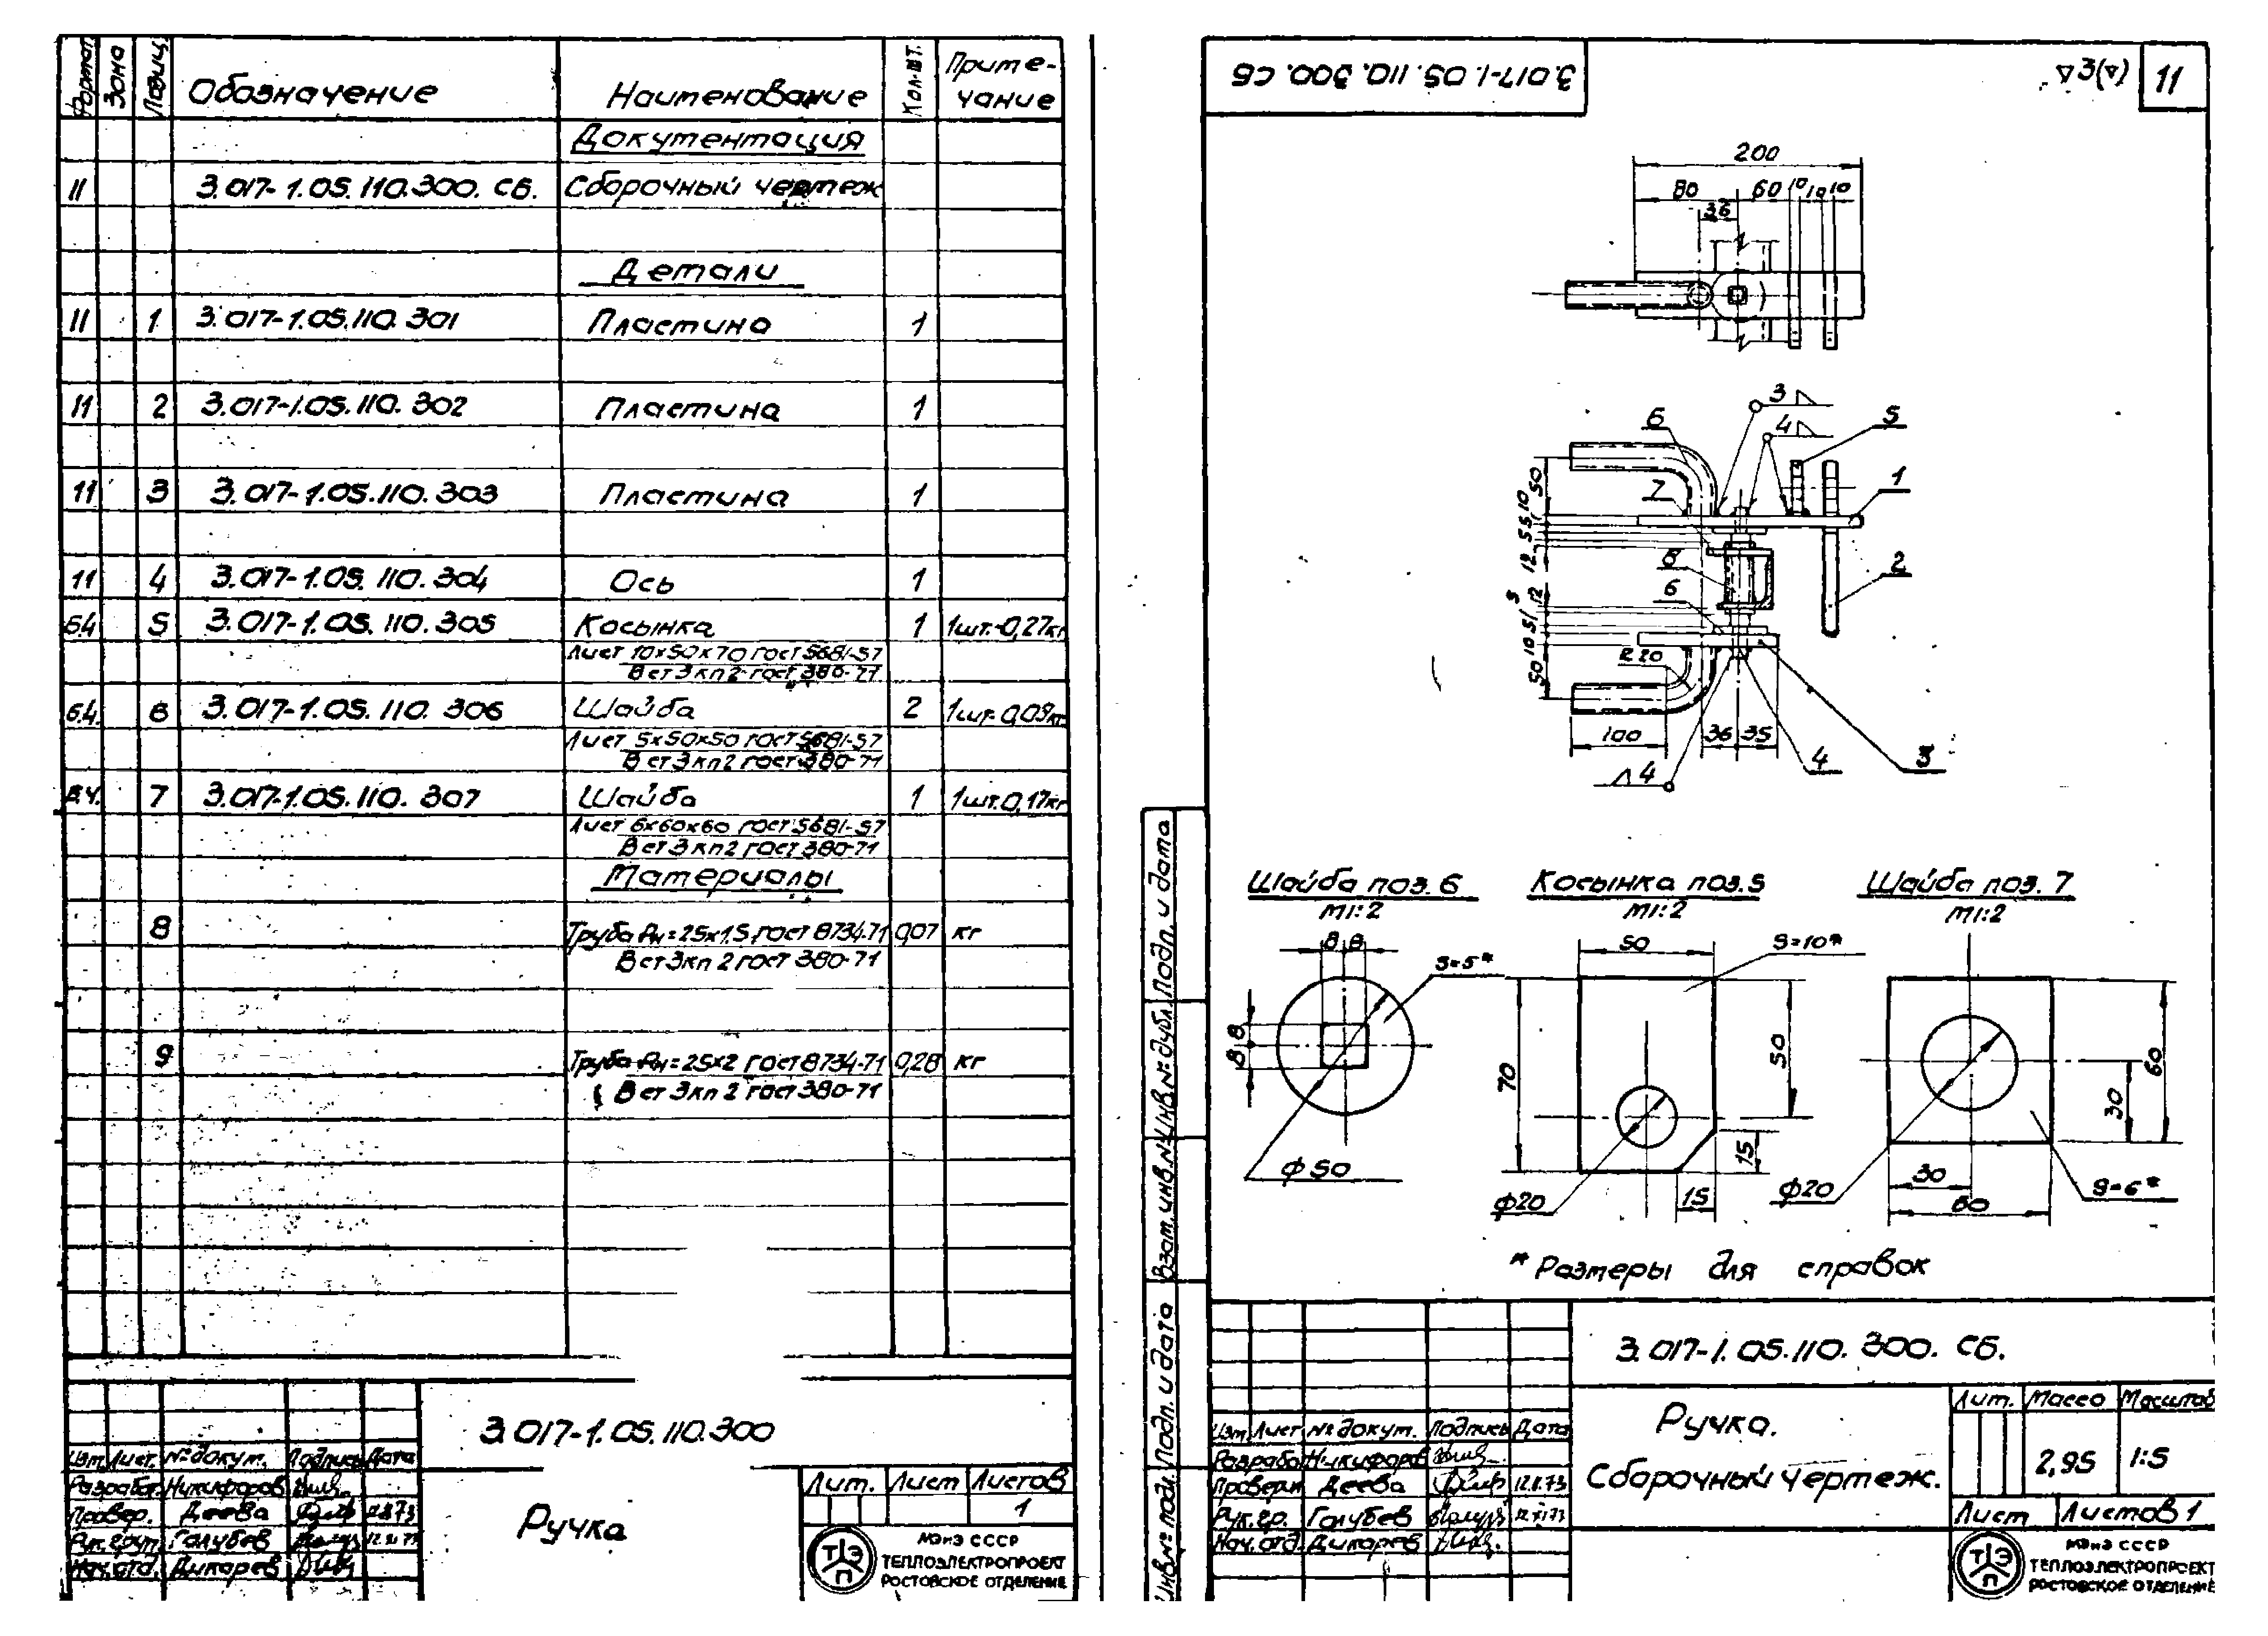 Формат Зона Позиц. Обозначение Наименование Кол-шт. Примечание
Документация
11 3.017-1.05.110.300.Сб. Сборочный чертеж
Детали
11 1 3.017-1.05.110.301 Пластина 1
11 2 3.017-1.05.110.302 Пластина 1
11 3 3.017-1.05.110.303 Пластина 1
11 4 3.017-1.05.110.304 Ось 1
Б.4 5 3.017-1.05.110.305 Косынка 1 1шт.-0,27кг
Лист 10х50х70 ГОСТ 5681-57
Вст3кп2 гост 380-71
Б.4. 6 3.017-1.05.110.306 Шайба 2 1шт-0,09кг
Лист 5х50х50 ГОСТ 5681-57
Вст3кп2 гост 380-71
Б.Ч. 7 3.017-1.05.110.307 Шайба 1 1шт.0,17кг
Лист 6х60х60 ГОСТ 5681-57
Вст3кп2 гост 380-71
Материалы
8 Труба Дн=25х1.5 ГОСТ 8734-71 0,07 кг
Вст3кп2 гост 380-71
9 Труба Дн=25х2 ГОСТ 8734-71 0,28 кг
Вст3кп2 гост 380-71
3.017-1.05.110.300
Изм. Лист. № докум. Подпись Дата
Разработ. Никифоров
Провер. Деева
Рук.груп. Голубев
Нач.отд. Дикарев
Ручка
Лит. Лист Листов
1
ТЭП
МЭиЭ СССР
ТЕПЛОЭЛЕКТРОПРОЕКТ
РОСТОВСКОЕ ОТДЕЛЕНИЕ
3.017-1.05.110.300.СБ
▽3(▽) 11
200
80 60 10 10 10
36
3
4
6 5
7 1
8 2
6
50
10
5
5
12
12
3
5
10
50
R20
100 36 35
4 4 3
Шайба поз.6
М1:2
8 8
S=5*
8
8
ф50
Косынка поз.5
М1:2
50
S=10*
70
50
15
15
ф20
Шайба поз.7
М1:2
60
30
ф20
30
60
S=6*
*Размеры для справок
Подп. и дата
Инв.№ дубл.
Взам.инв.№
Подп. и дата
Инв.№ подл.
3.017-1.05.110.300.Сб.
Изм. Лист № докум. Подпись Дата
Разработ. Никифоров
Проверил Деева 12.11.73
Рук.гр. Голубев 12.XI.73
Нач.отд. Дикарев
Ручка.
Сборочный чертеж.
Лит. Масса Масштаб
2,95 1:5
Лист Листов 1
ТЭП
МЭиЭ СССР
ТЕПЛОЭЛЕКТРОПРОЕКТ
РОСТОВСКОЕ ОТДЕЛЕНИЕ